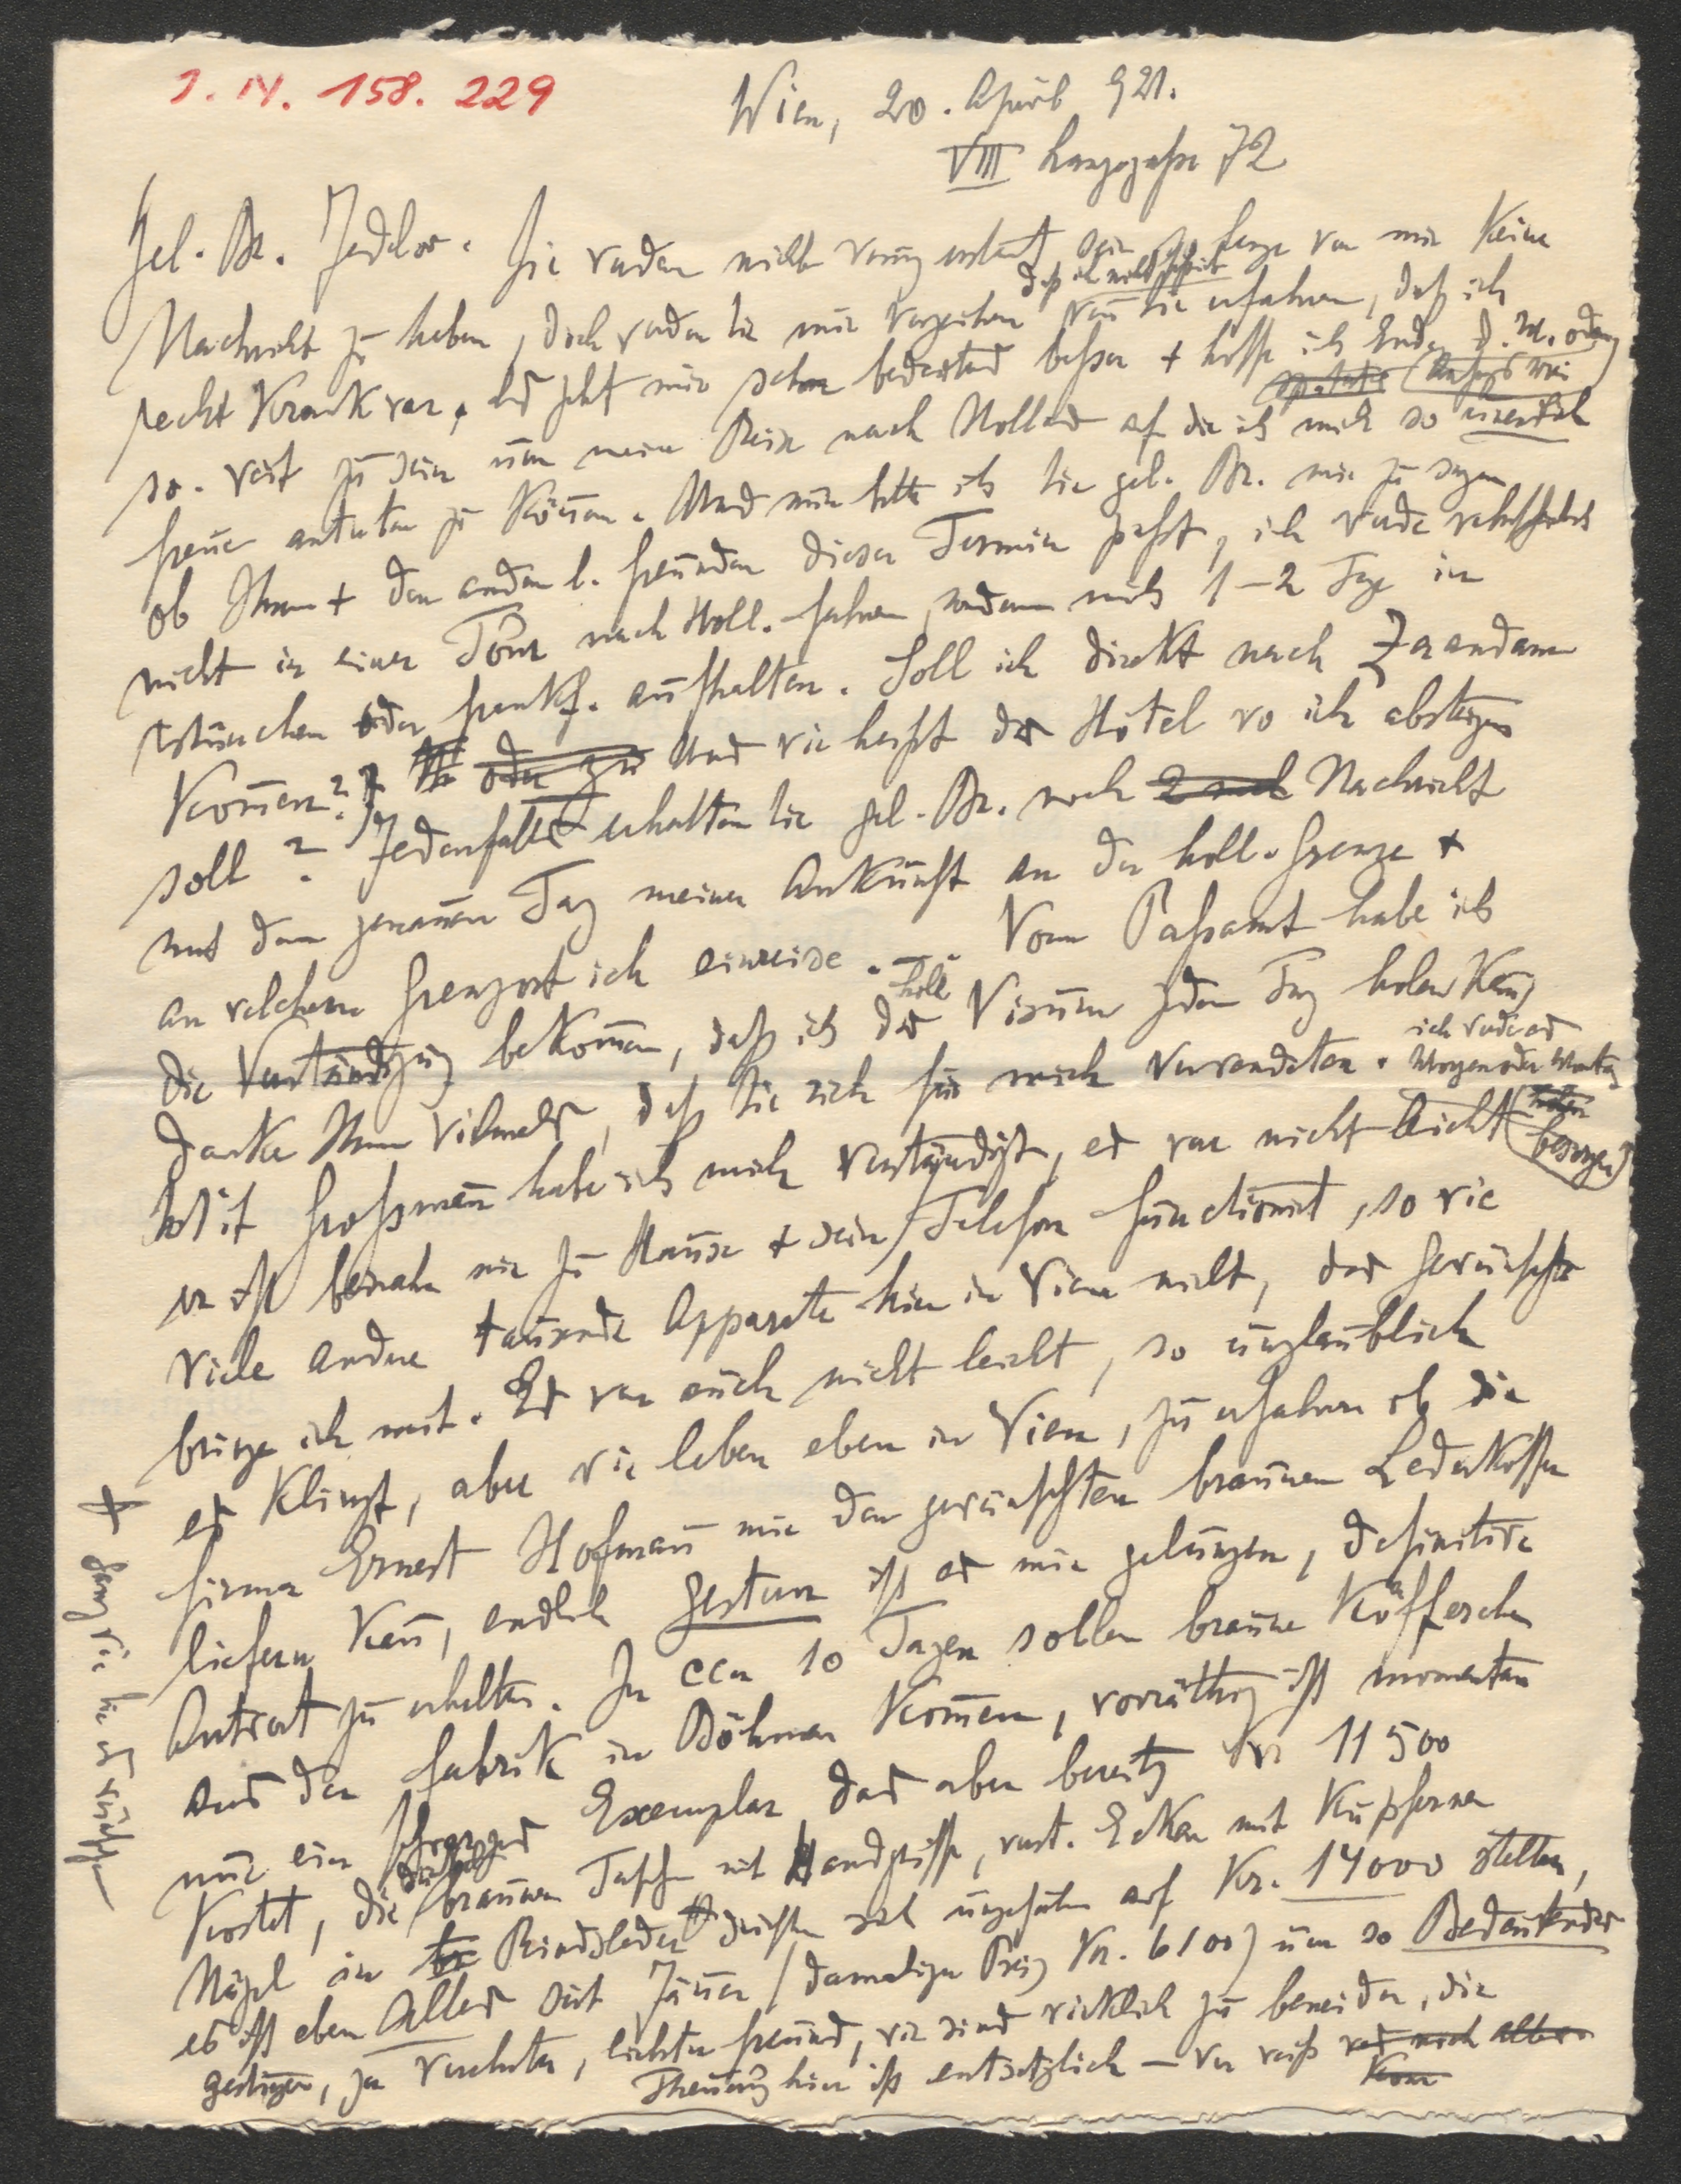 J. N. 158. 229
Wien, 20. April 921.
VIII Langegasse 72
Gel. Br. Jedlor. Sie werden nicht wenig erstaunt sein so lange von mir keine
daß ich nicht schrieb
Nachricht zu haben, doch werden Sie mir verzeihen wenn Sie erfahren, daß ich
recht krank war, es geht mir schon bedeutend besser + hoffe ich Ende d. M. oder
spätestens (Anfangs Mai)
so weit zu sein um meine Reise nach Holland auf die ich mich so unendlich
freue antreten zu können. Und nun bitte ich Sie gel. Br. mir zu sagen
ob Ihnen + den andern l. Freunden dieser Termin paßt, ich werde wahrscheinlich
nicht in einer Tour nach Holl. fahren, sondern mich 1–2 Tage in
München oder Frankf. aufhalten. Soll ich direkt nach Zaandam
kommen? oder zu Und wie heißt das Hôtel wo ich absteigen
soll? Jedenfalls erhalten Sie gel. Br. noch Nachricht
mit dem genauen Tag meiner Ankunft an der holl. Grenze +
an welchem Grenzort ich einreise. — . Vom Paßamt habe ich
holl
die Verständigung bekommen, daß ich das Visum jeden Tag holen kann,
ich werde es
danke Ihnen vielmals, daß Sie sich für mich verwendeten. Morgen oder Montag
holen
besorgen)
Mit Großmann habe ich mich verständigt, es war nicht leicht
er ist beinahe nie zu Hause + sein Telefon functionirt, so wie
viele andere tausende Apparate hier in Wien nicht, das Gewünschte
bringe ich mit. Es war auch nicht leicht, so unglaublich
es klingt, aber wir leben eben in Wien, zu erfahren ob die
Firma Ernest Hofmann mir den gewünschten braunen Lederkoffer
liefern kann, endlich gestern ist es mir gelungen, definitive
Antwort zu erhalten. In cca 10 Tagen sollen braune Kofferchen
aus der Fabrik in Böhmen kommen, vorräthig ist momentan
nur ein schwarzes Exemplar das aber bereits Kr 11 500
kostet, die braunen Tasche mit Handgriff, verst. Ecken mit kupfernen
Nägel in Rindsleder dürfte sich ungefähr auf Kr. 14000 stellen,
es ist eben Alles seit Jänner (damaliger Preis Kr. 6100) um so Bedeutendes
gestiegen, ja verehrter, liebster Freund, wir sind wirklich zu beneiden, die
Theuerung hier ist entsetzlich — wer weiß was noch alles
kom
+ ganz wie Sie es wünschen